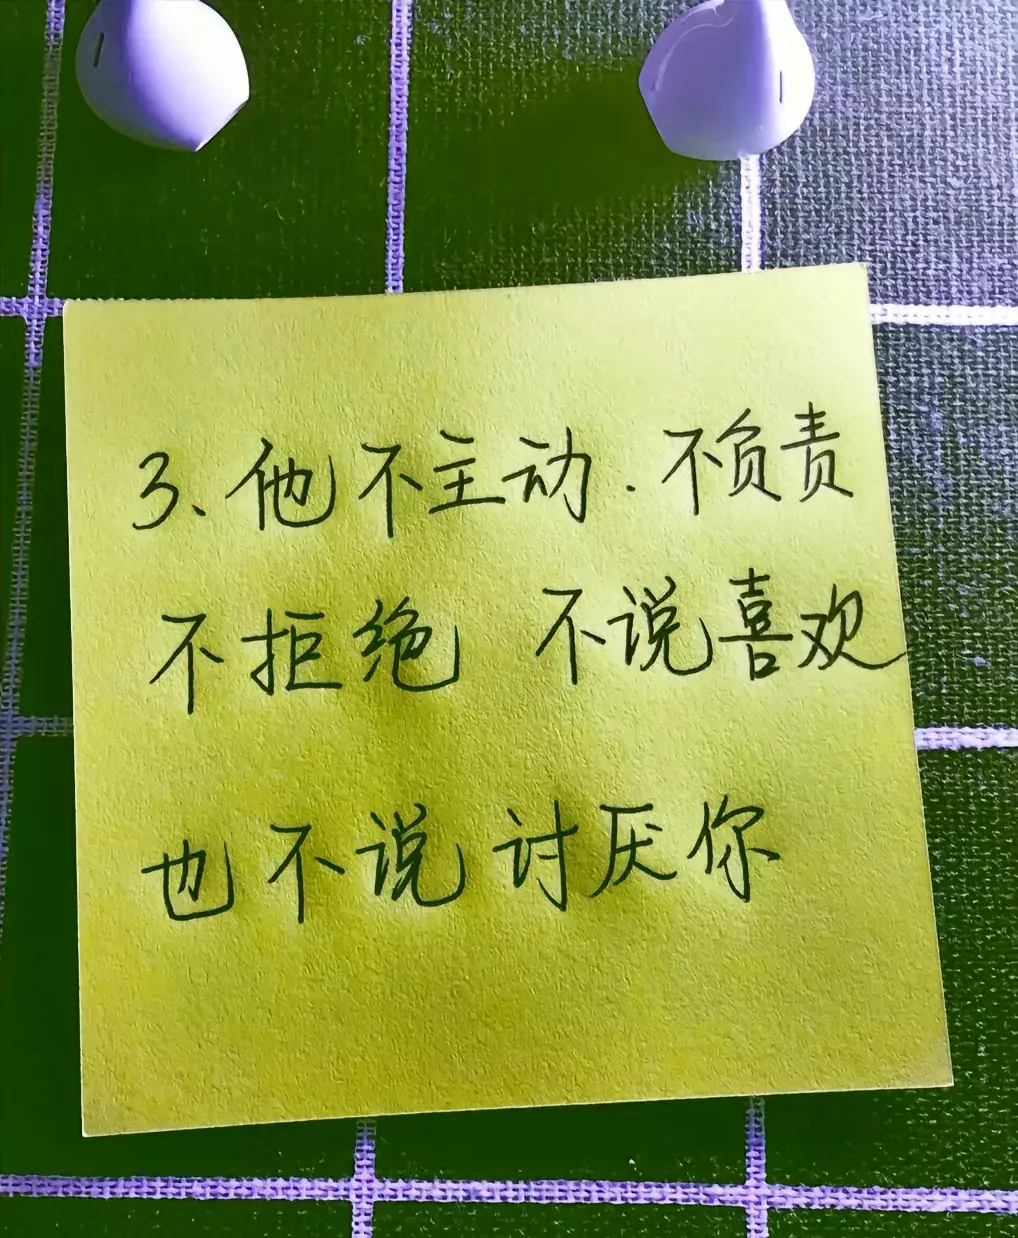 3、他不主动.不负责
不拒绝 不说喜欢
也不说讨厌你